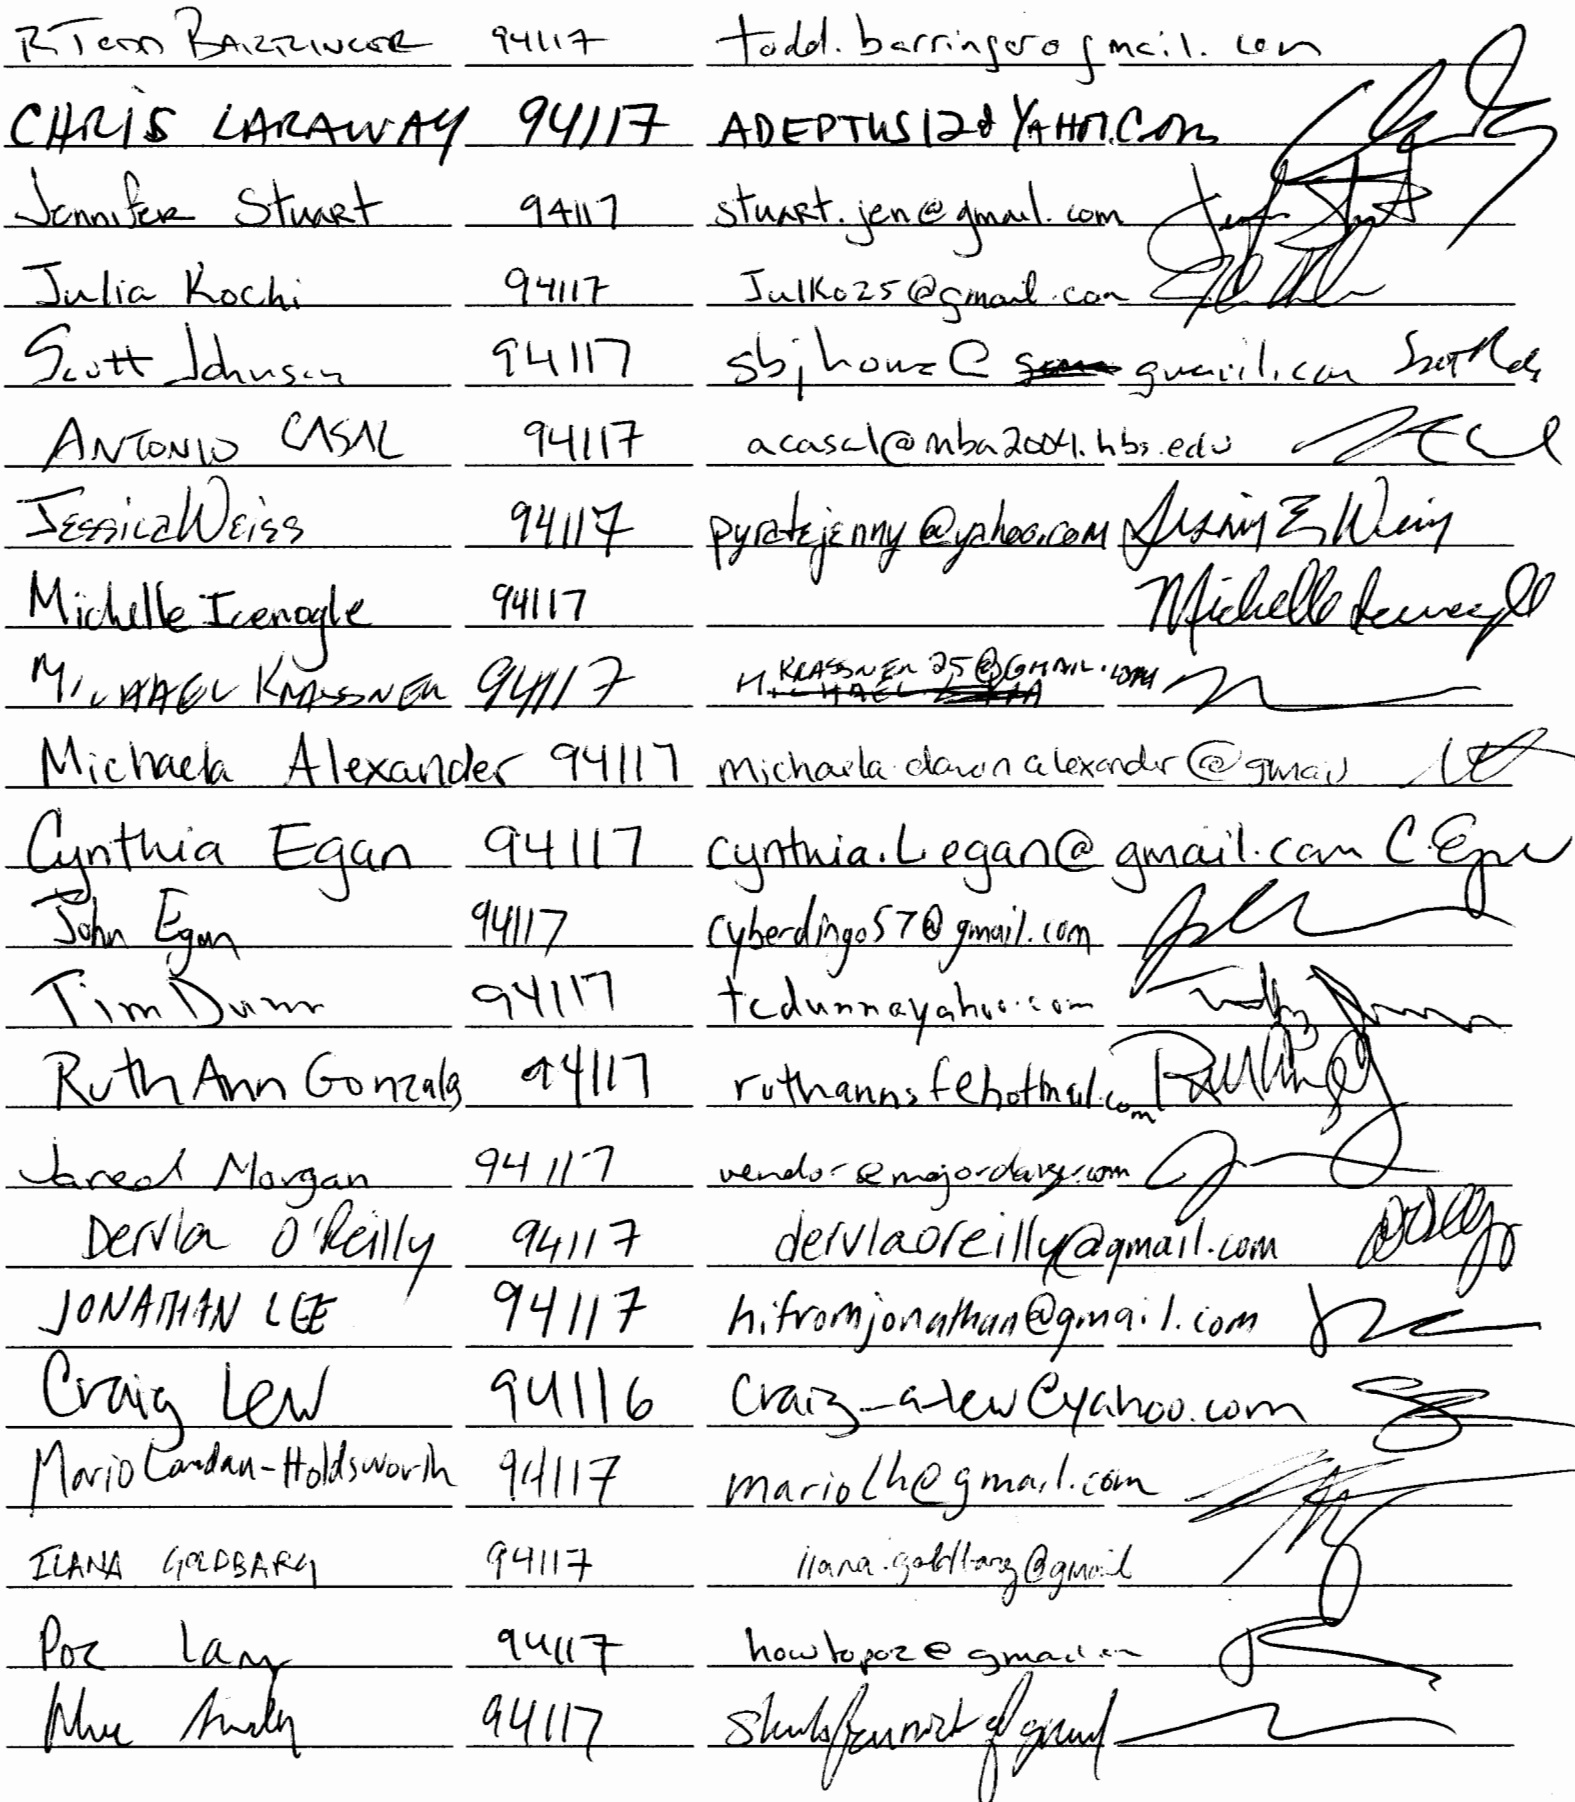 R Todd BARRINGER 94117 todd.barringer@gmail.com
CHRIS LARAWAY 94117 ADEPTUS12@YAHOO.COM
Jennifer Stuart 94117 stuart.jen@gmail.com
Julia Kochi 94117 Julko25@gmail.com
Scott Johnson 94117 sbjhome@ gmail.com
ANTONIO CASAL 94117 acasal@mba2004.hbs.edu
Jessica Weiss 94117 pyratejenny@yahoo.com
Michelle Icenogle 94117 Michelle Icenogle
MICHAEL KRASSNER 94117 KRASSNER25@GMAIL.COM
Michaela Alexander 94117 michaela.dawn.alexander@gmail
Cynthia Egan 94117 cynthia.L.egan@gmail.com C. Egan
John Egan 94117 cyberdingo57@gmail.com
Tim Dunn 94117 tcdunn@yahoo.com
Ruth Ann Gonzales 94117 ruthannsf@hotmail.com
Jared Morgan 94117
Dervla O'Reilly 94117 dervlaoreilly@gmail.com
JONATHAN LEE 94117 hifromjonathan@gmail.com
Craig Lew 94116 craig_a_lew@yahoo.com
Mario Landau-Holdsworth 94117 mariolh@gmail.com
ILANA GOLDBARG 94117 ilana.goldbarg@gmail
Poz Lang 94117 howtopoz@gmail.com
94117